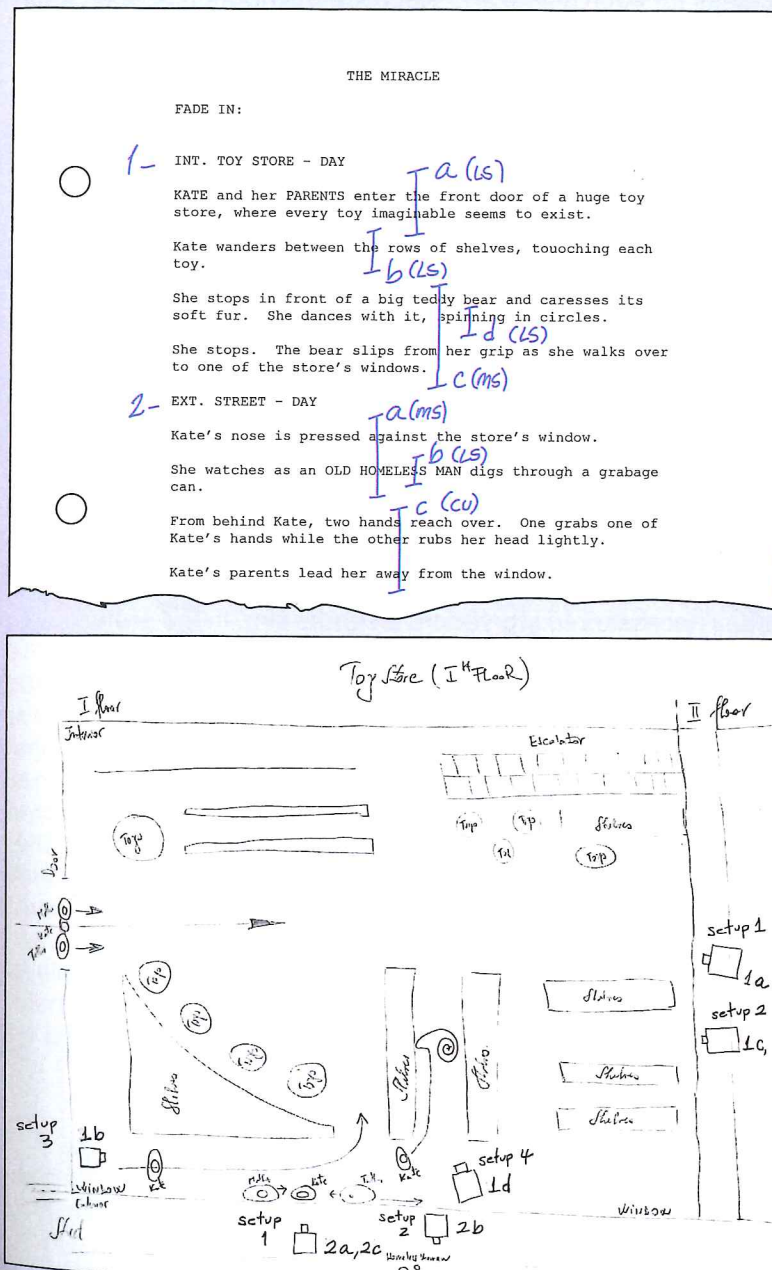 THE MIRACLE
FADE IN:
1- INT. TOY STORE - DAY
a (LS)
KATE and her PARENTS enter the front door of a huge toy
store, where every toy imaginable seems to exist.
Kate wanders between the rows of shelves, touoching each
toy.
b (LS)
She stops in front of a big teddy bear and caresses its
soft fur. She dances with it, spinning in circles.
d (LS)
She stops. The bear slips from her grip as she walks over
to one of the store's windows.
c (MS)
2- EXT. STREET - DAY
a (MS)
Kate's nose is pressed against the store's window.
b (LS)
She watches as an OLD HOMELESS MAN digs through a grabage
can.
c (CU)
From behind Kate, two hands reach over. One grabs one of
Kate's hands while the other rubs her head lightly.
Kate's parents lead her away from the window.
Toy Store (I FLOOR)
I floor
II floor
Interior
Escalator
Toys
Shelves
Door
Kate
setup 1
1a
setup 2
1c,
Shelves
Toys
Shelves
Shelves
Shelves
Shelves
Shelves
setup 3
1b
Kate
Kate
Kate
setup 4
1d
WINDOW
WINDOW
setup 1
2a, 2c
setup 2
2b